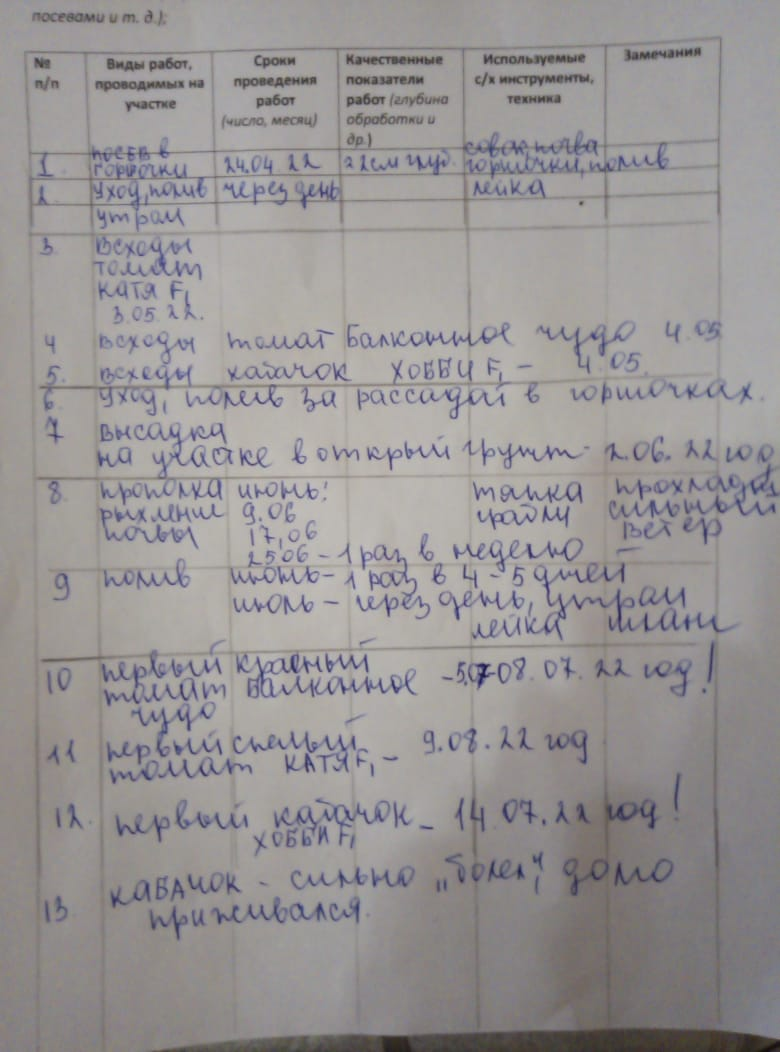 посевами и т. д.);
№ п/п Виды работ, проводимых на участке Сроки проведения работ (число, месяц) Качественные показатели работ (глубина обработки и др.) Используемые с/х инструменты, техника Замечания
1. посев в горшочки 24.04 22 22см глуб. совок, почва горшочки, полив
2. Уход, полив через день лейка
утром
3. Всходы
томат
КАТЯ F1
3.05.22.
4 Всходы томат Балконное чудо 4.05
5. Всходы кабачок ХОББИ F1 – 4.05.
6. Уход, полив за рассадой в горшочках.
7 высадка
на участке в открый грунт - 2.06.22 год
8. прополка июнь: тяпка прохладн
рыхление 9.06 грабли сильный
почвы 17,06 ветер
2506 – 1 раз в неделю –
9 полив июнь – 1 раз в 4-5 дней
июль – через день, утрам
лейка шланг
10 первый красный
томат Балконное – 08.07.22 год!
чудо
11 первый спелый
томат КАТЯ F1 – 9.08.22 год
12. первый кабачок – 14.07.22 год!
ХОББИ F1
13 КАБАЧОК - сильно „болел", долго
приживался.